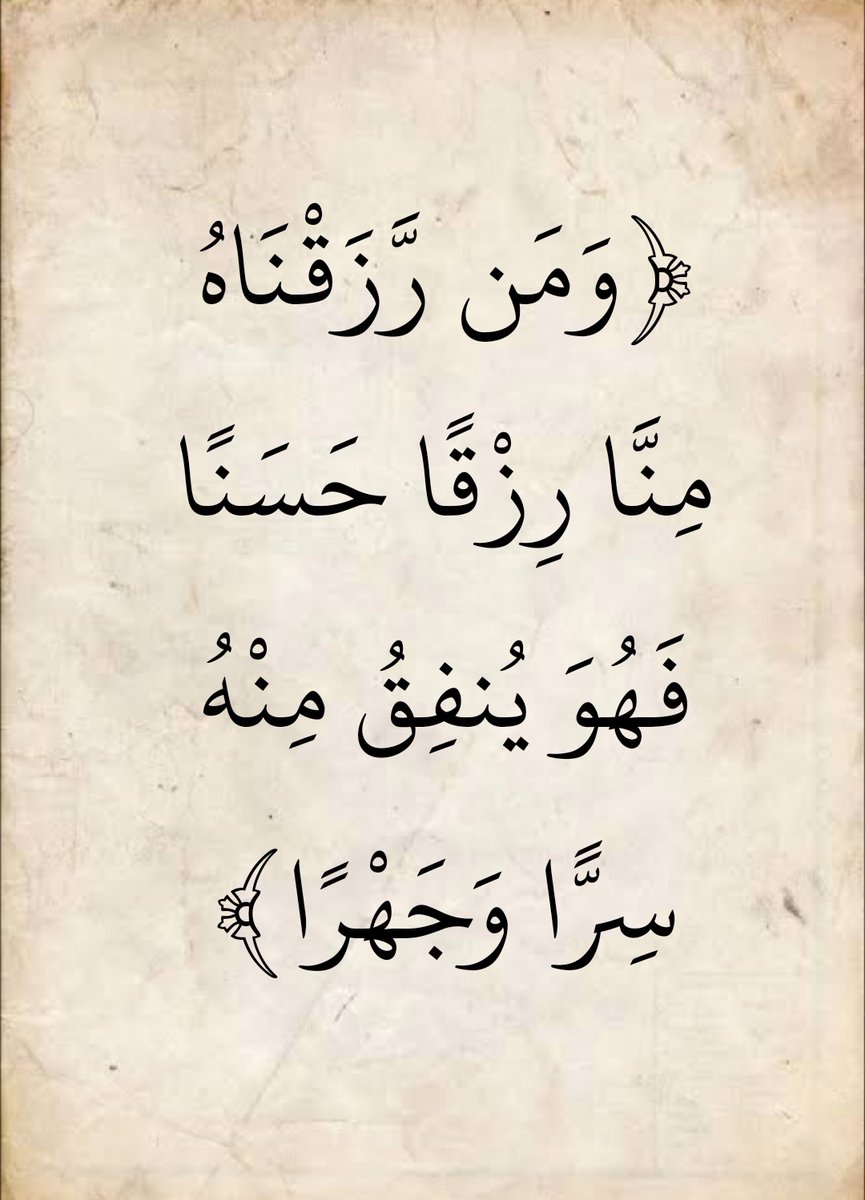 ﴿وَمَن رَّزَقْنَاهُ
مِنَّا رِزْقًا حَسَنًا
فَهُوَ يُنفِقُ مِنْهُ
سِرًّا وَجَهْرًا﴾